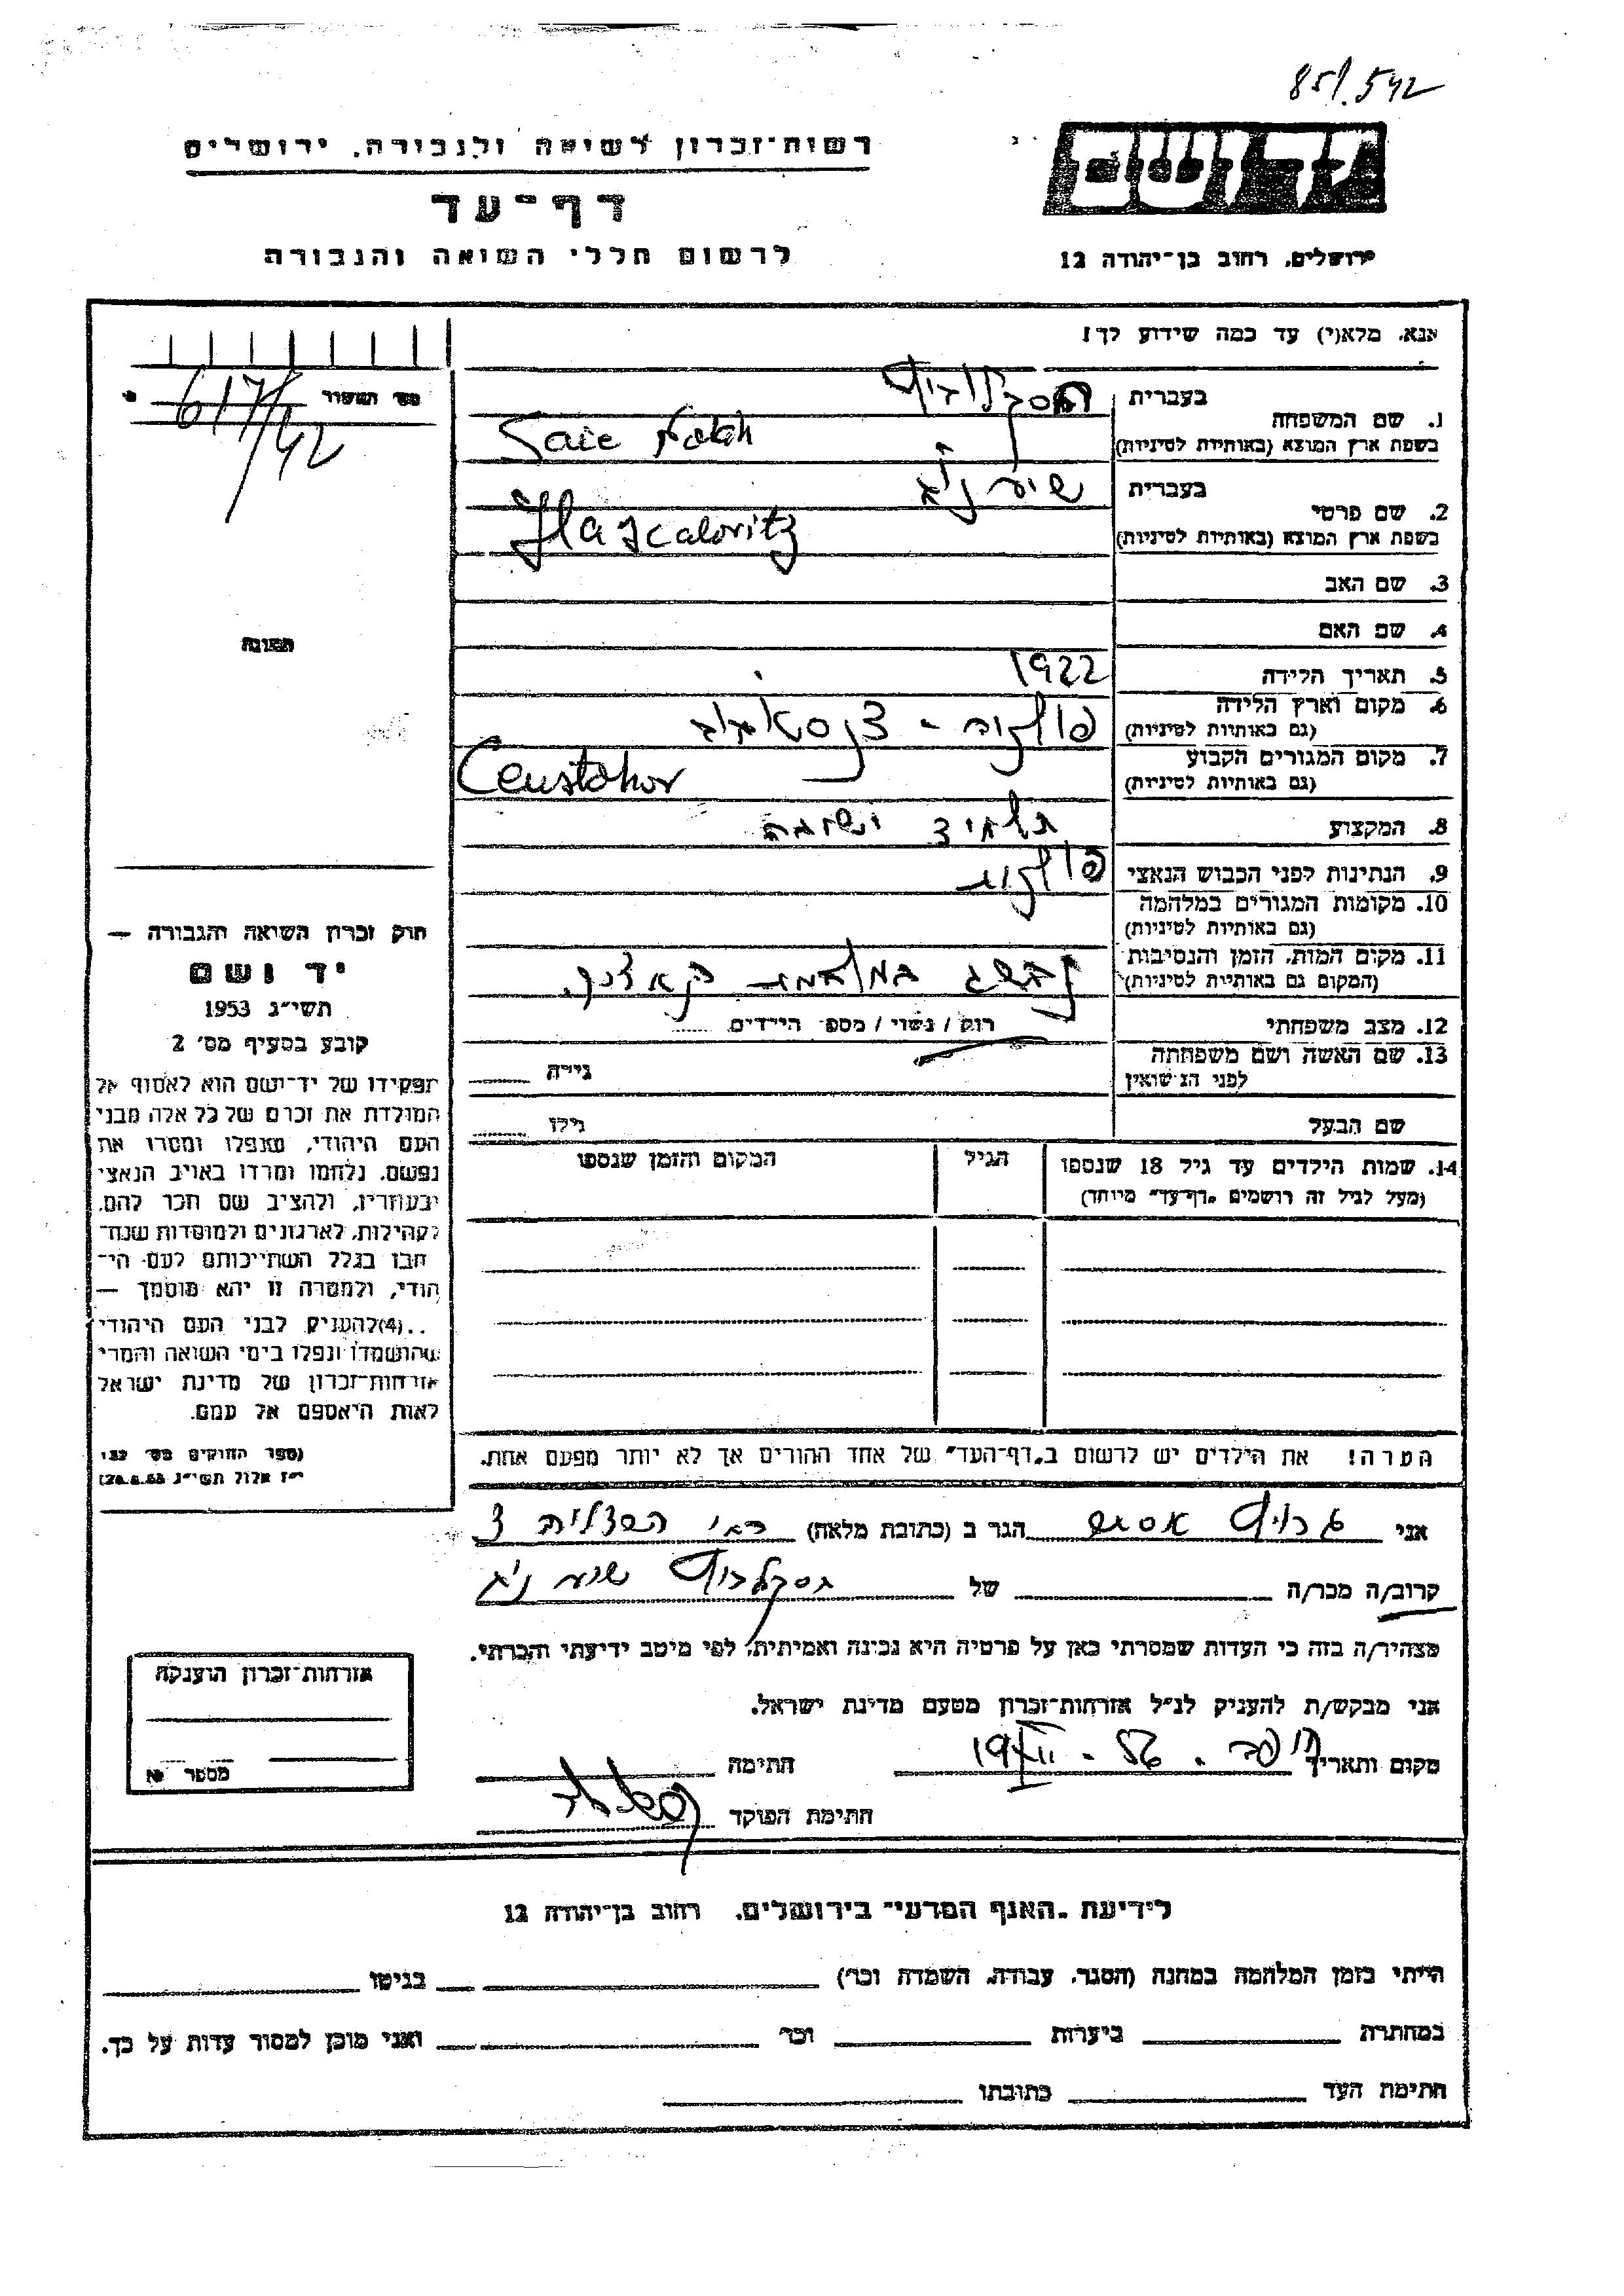 851.542
רשות־זכרון לשואה ולגבורה, ירושלים
דף־עד
לרשום חללי השואה והגבורה
ירושלים, רחוב בן־יהודה 12
אנא, מלא(י) עד כמה שידוע לך!
מס' תעשור 617/42
בעברית
1. שם המשפחה
Saie Natah
בשפת ארץ המוצא (באותיות לטיניות)
בעברית
2. שם פרטי
Hascalovitz
בשפת ארץ המוצא (באותיות לטיניות)
3. שם האב
4. שם האם
תמונה
5. תאריך הלידה 1922
6. מקום וארץ הלידה
(גם באותיות לטיניות)
7. מקום המגורים הקבוע
(גם באותיות לטיניות)
Ceustohov
8. המקצוע תלמיד ישיבה
9. הנתינות לפני הכבוש הנאצי פולנית
10. מקומות המגורים במלחמה
(גם באותיות לטיניות)
11. מקום המות, הזמן והנסיבות
(המקום גם באותיות לטיניות)
12. מצב משפחתי רווק / נשוי / מספר הילדים
13. שם האשה ושם משפחתה
לפני הנישואין גילה
שם הבעל גילו
14. שמות הילדים עד גיל 18 שנספו הגיל המקום והזמן שנספו
(מעל לגיל זה רושמים "דף־עד" מיוחד)
חוק זכרון השואה והגבורה —
יד ושם
תשי"ג 1953
קובע בסעיף מס' 2
תפקידו של יד־ושם הוא לאסוף אל
המולדת את זכרם של כל אלה מבני
העם היהודי, שנפלו ומסרו את
נפשם, נלחמו ומרדו באויב הנאצי
ובעוזריו, ולהציב שם וזכר להם,
לקהילות, לארגונים ולמוסדות שנח־
רבו בגלל השתייכותם לעם הי־
הודי, ולמטרה זו יהא מוסמך —
..(4)להעניק לבני העם היהודי
שהושמדו ונפלו בימי השואה והמרי
אזרחות־זכרון של מדינת ישראל
לאות היאספם אל עמם.
(ספר החוקים מס' 132
י"ז אלול תשי"ג 28.8.53)
הערה! את הילדים יש לרשום ב"דף־העד" של אחד ההורים אך לא יותר מפעם אחת.
אני הגר ב (כתובת מלאה)
קרוב/ה מכר/ה של
מצהיר/ה בזה כי העדות שמסרתי כאן על פרטיה היא נכונה ואמיתית, לפי מיטב ידיעתי והכרתי.
אני מבקש/ת להעניק לנ"ל אזרחות־זכרון מטעם מדינת ישראל.
מקום ותאריך חתימה
חתימת הפוקד
אזרחות־זכרון הוענקה
מספר №
לידיעת "האגף המדעי" בירושלים, רחוב בן־יהודה 12
הייתי בזמן המלחמה במחנה (הסגר, עבודה, השמדה וכו') בגיטו
במחתרת ביערות וכו' ואני מוכן למסור עדות על כך.
חתימת העד כתובתו